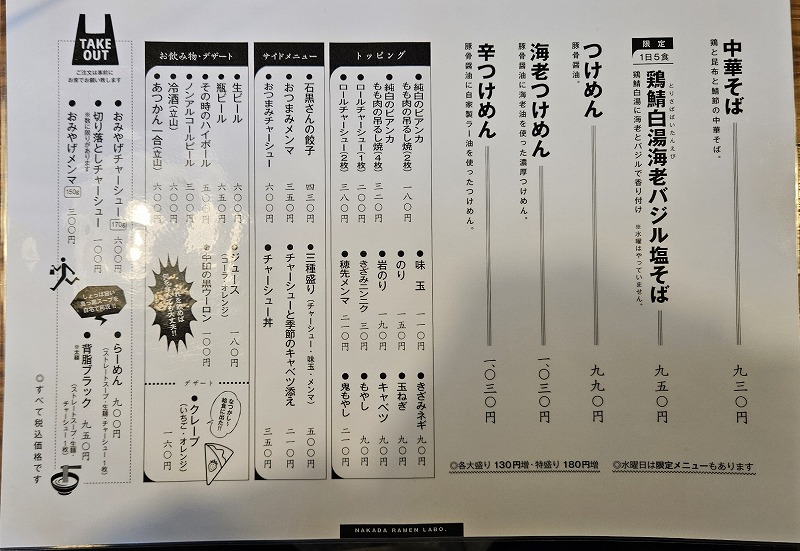 中華そば 九三〇円
鶏と昆布と鯖節の中華そば。
限定
1日5食
鶏鯖白湯海老バジル塩そば 九五〇円
とりさばぱいたんえび
鶏鯖白湯に海老とバジルで香り付け ※水曜はやっていません。
つけめん 九九〇円
豚骨醤油。
海老つけめん 一、〇三〇円
豚骨醤油に海老油を使った濃厚つけめん。
辛つけめん 一、〇三〇円
豚骨醤油に自家製ラー油を使ったつけめん。
◎水曜日は限定メニューもあります
◎各大盛り 130円増・特盛り 180円増
トッピング
●純白のビアンカ
もも肉の吊るし焼(2枚) 一八〇円
●純白のビアンカ
もも肉の吊るし焼(4枚) 三二〇円
●ロールチャーシュー(1枚) 二〇〇円
●ロールチャーシュー(2枚) 三八〇円
●味玉 一一〇円
●のり 一五〇円
●岩のり 一九〇円
●きざみニンニク 三〇円
●穂先メンマ 二一〇円
●きざみネギ 九〇円
●玉ねぎ 九〇円
●キャベツ 九〇円
●もやし 九〇円
●鬼もやし 二一〇円
サイドメニュー
●石黒さんの餃子 四三〇円
●おつまみメンマ 三五〇円
●おつまみチャーシュー 六〇〇円
●三種盛り(チャーシュー・味玉・メンマ) 五〇〇円
●チャーシューと季節のキャベツ添え 二一〇円
●チャーシュー丼 三五〇円
お飲み物・デザート
●生ビール 六〇〇円
●瓶ビール 六五〇円
●その時のハイボール 五〇〇円
●ノンアルコールビール 三〇〇円
●冷酒(立山) 六〇〇円
●あつかん 一合(立山) 六〇〇円
●ジュース 一八〇円
(コーラ・オレンジ)
●中田の黒ウーロン 一〇〇円
デザート
●クレープ 一六〇円
(いちご・オレンジ)
なつかし〜
給食に出た!!
TAKE
OUT
ご注文は事前に
お席でお願い致します
●おみやげチャーシュー 170g 六〇〇円
●切り落としチャーシュー 一〇〇円
※数に限りがあります
●おみやげメンマ 150g 三〇〇円
●らーめん 九〇〇円
(ストレートスープ・生麺・チャーシュー1枚)
●背脂ブラック 九五〇円
※太麺
(ストレートスープ・生麺・チャーシュー1枚)
◎すべて税込価格です
NAKADA RAMEN LABO.